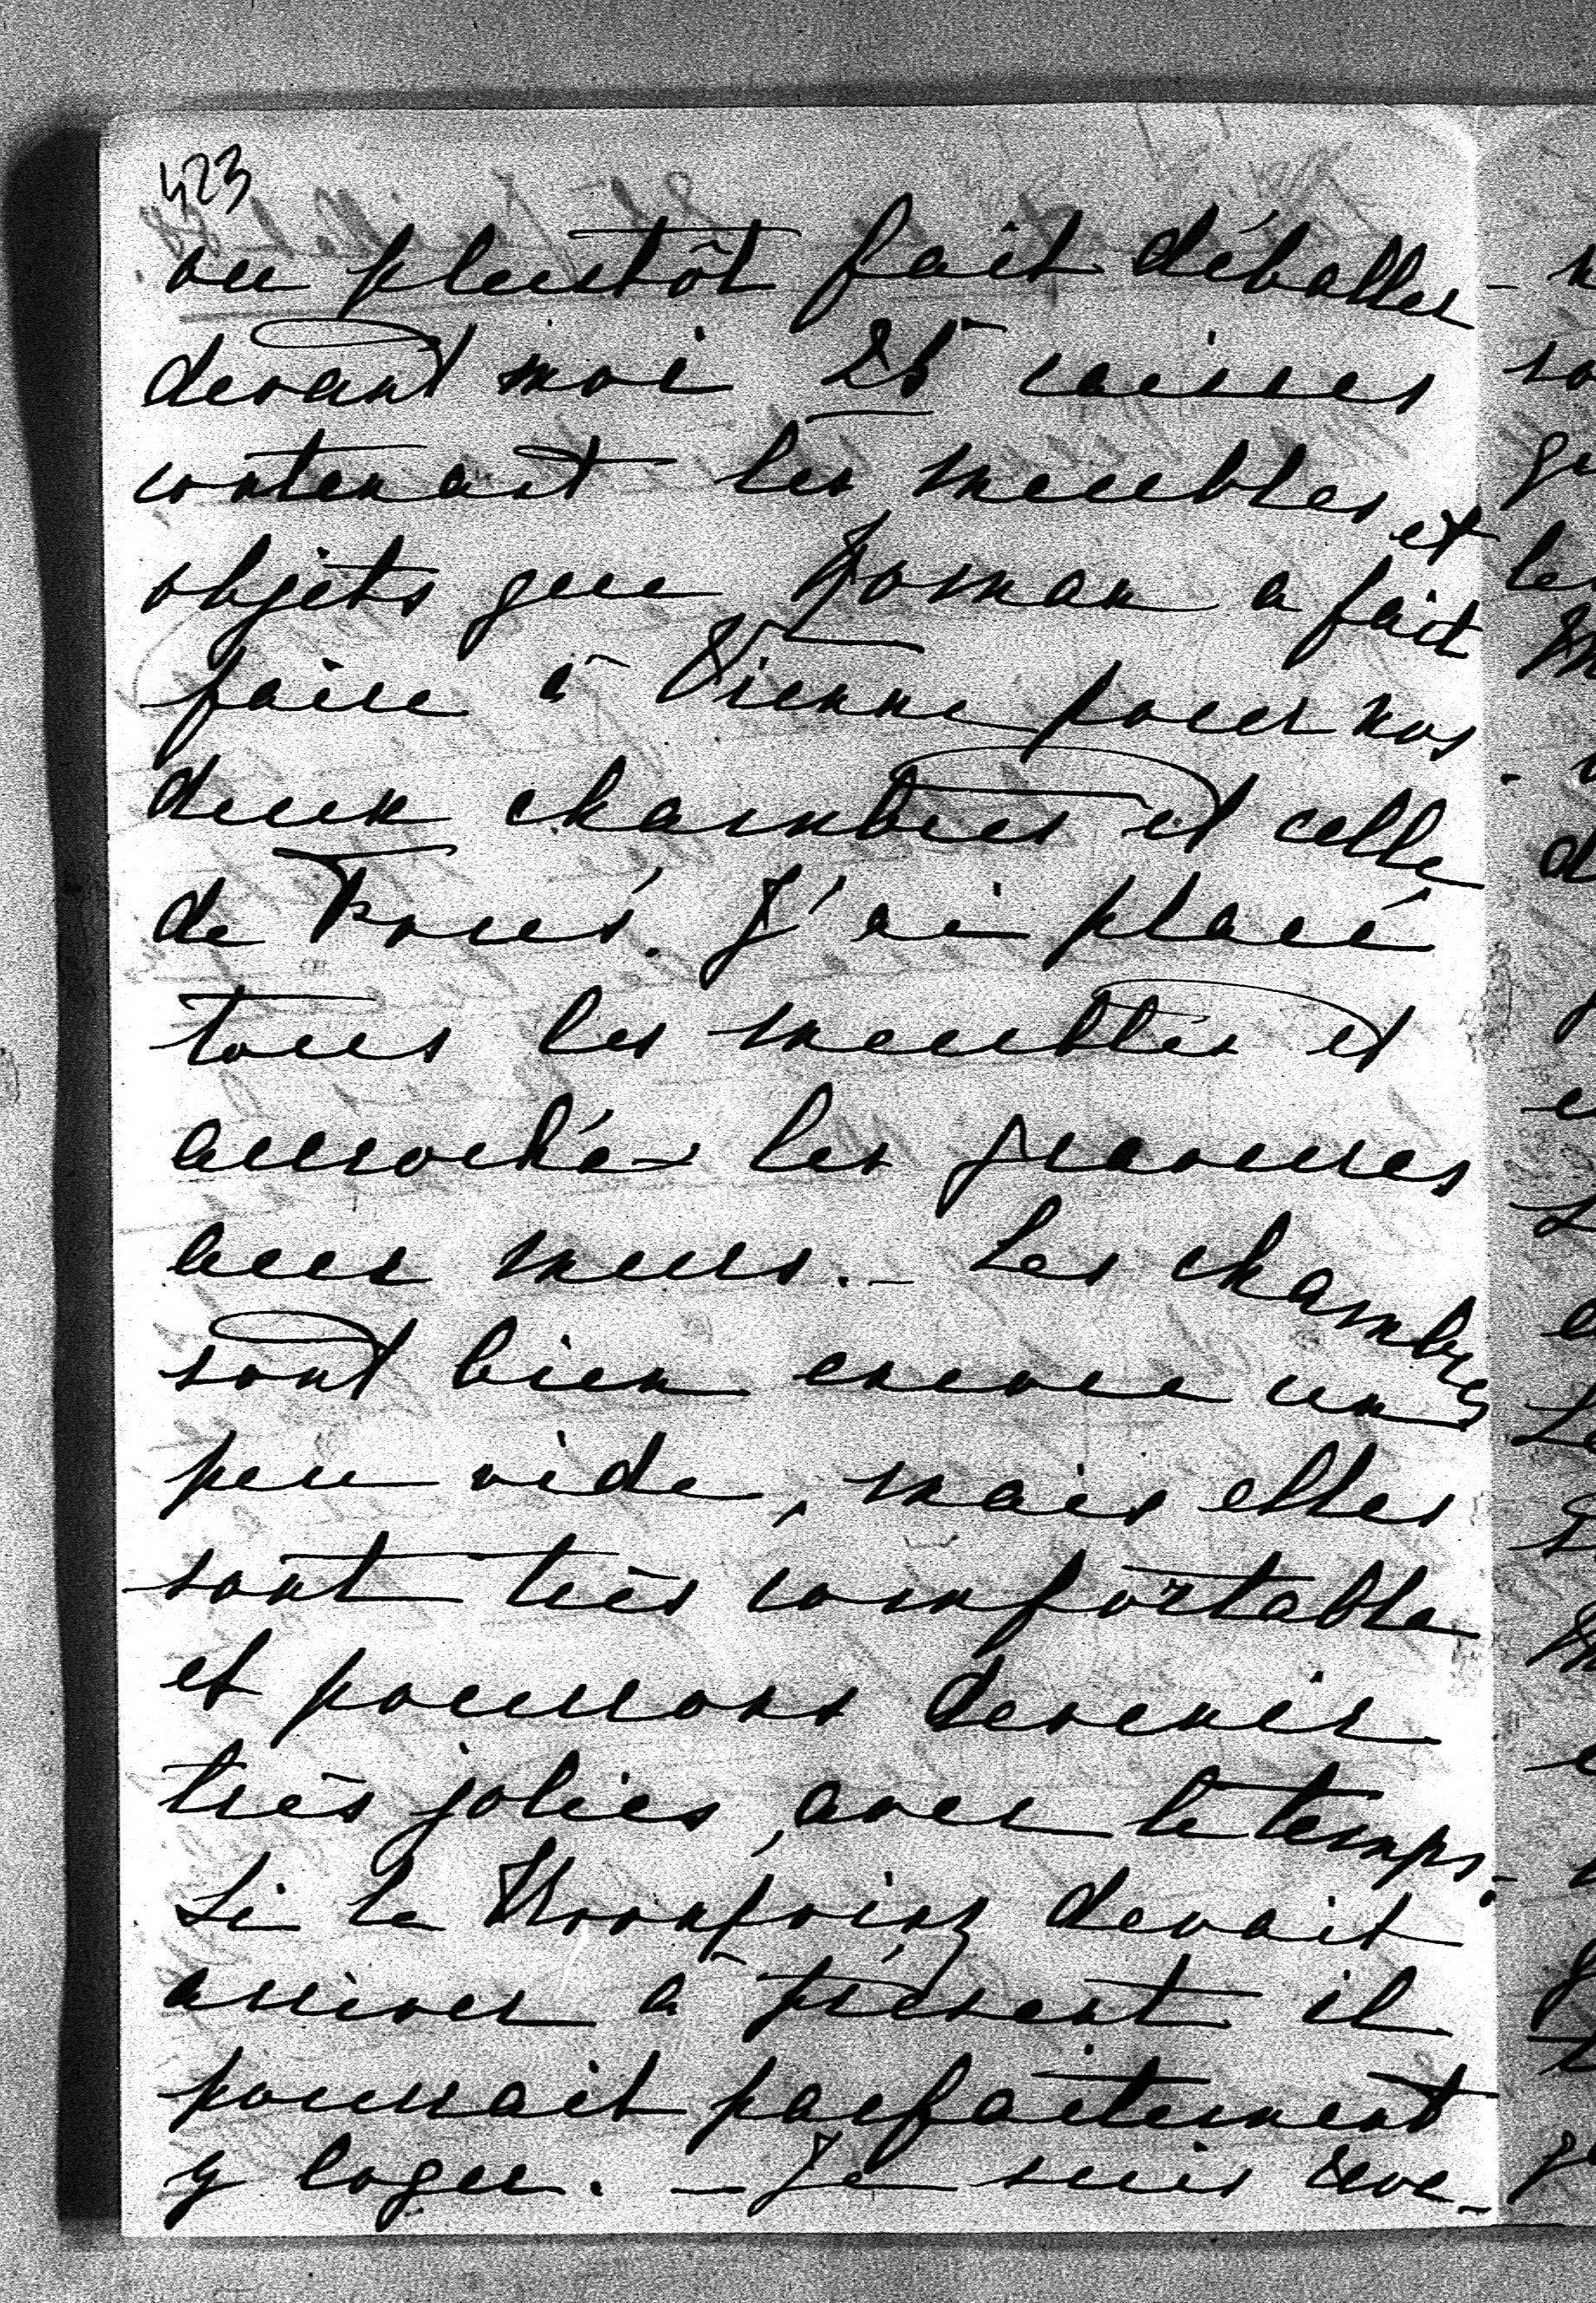 423
ou plustôt fait déballer
devant moi 25 caisses
contenant les meubles et
objets que Roman a fait
faire à Vienne pour nos
deux chambres et celle
de Rous. J'ai placé
tous les meubles et
accrochés les gravures
aux murs. – Les chambres
sont bien encore un
peu vide, mais elles
sont très comfortable
et pourrons devenir
très jolies, avec le temps.
Si le Kronprinz devait
arriver à présent il
pourrait parfaitement
y loger. – Je suis reve-